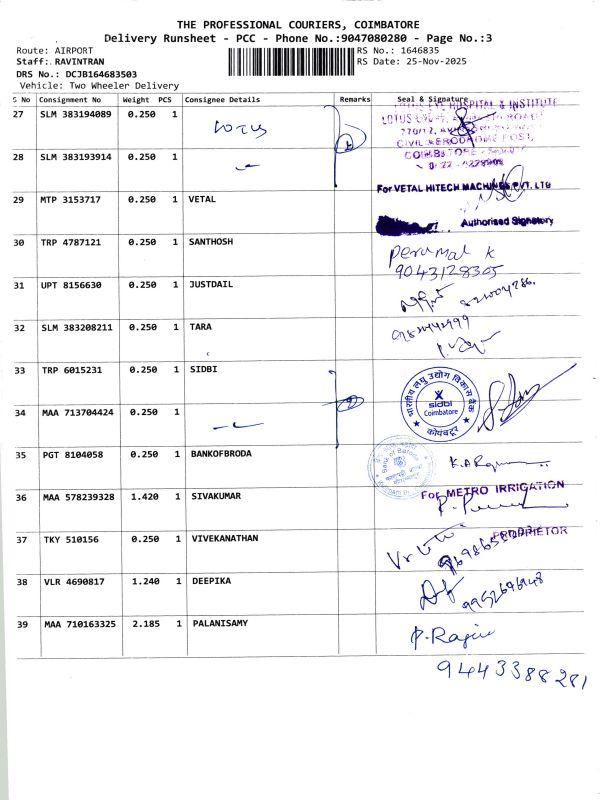 THE PROFESSIONAL COURIERS, COIMBATORE
Delivery Runsheet - PCC - Phone No.:9047080280 - Page No.:3
Route: AIRPORT
RS No.: 1646835
Staff: RAVINTRAN
RS Date: 25-Nov-2025
DRS No.: DCJB164683503
Vehicle: Two Wheeler Delivery
S No Consignment No Weight PCS Consignee Details Remarks Seal & Signature
27 SLM 383194089 0.250 1 Lotus
LOTUS EYE HOSPITAL & INSTITUTE
770/12,
CIVIL AERODROME POST,
COIMBATORE
28 SLM 383193914 0.250 1
For VETAL HITECH MACHINES PVT. LTD
29 MTP 3153717 0.250 1 VETAL
Authorised Signatory
30 TRP 4787121 0.250 1 SANTHOSH
Perumal K
9043128305
31 UPT 8156630 0.250 1 JUSTDAIL
32 SLM 383208211 0.250 1 TARA
33 TRP 6015231 0.250 1 SIDBI
भारतीय लघु उद्योग विकास बैंक
sidbi
Coimbatore
कोयंबटूर
34 MAA 713704424 0.250 1
35 PGT 8104058 0.250 1 BANKOFBRODA
Bank of Baroda
36 MAA 578239328 1.420 1 SIVAKUMAR
For METRO IRRIGATION
PROPRIETOR
37 TKY 510156 0.250 1 VIVEKANATHAN
38 VLR 4690817 1.240 1 DEEPIKA
9952646948
39 MAA 710163325 2.185 1 PALANISAMY
P. Raju
9443388281